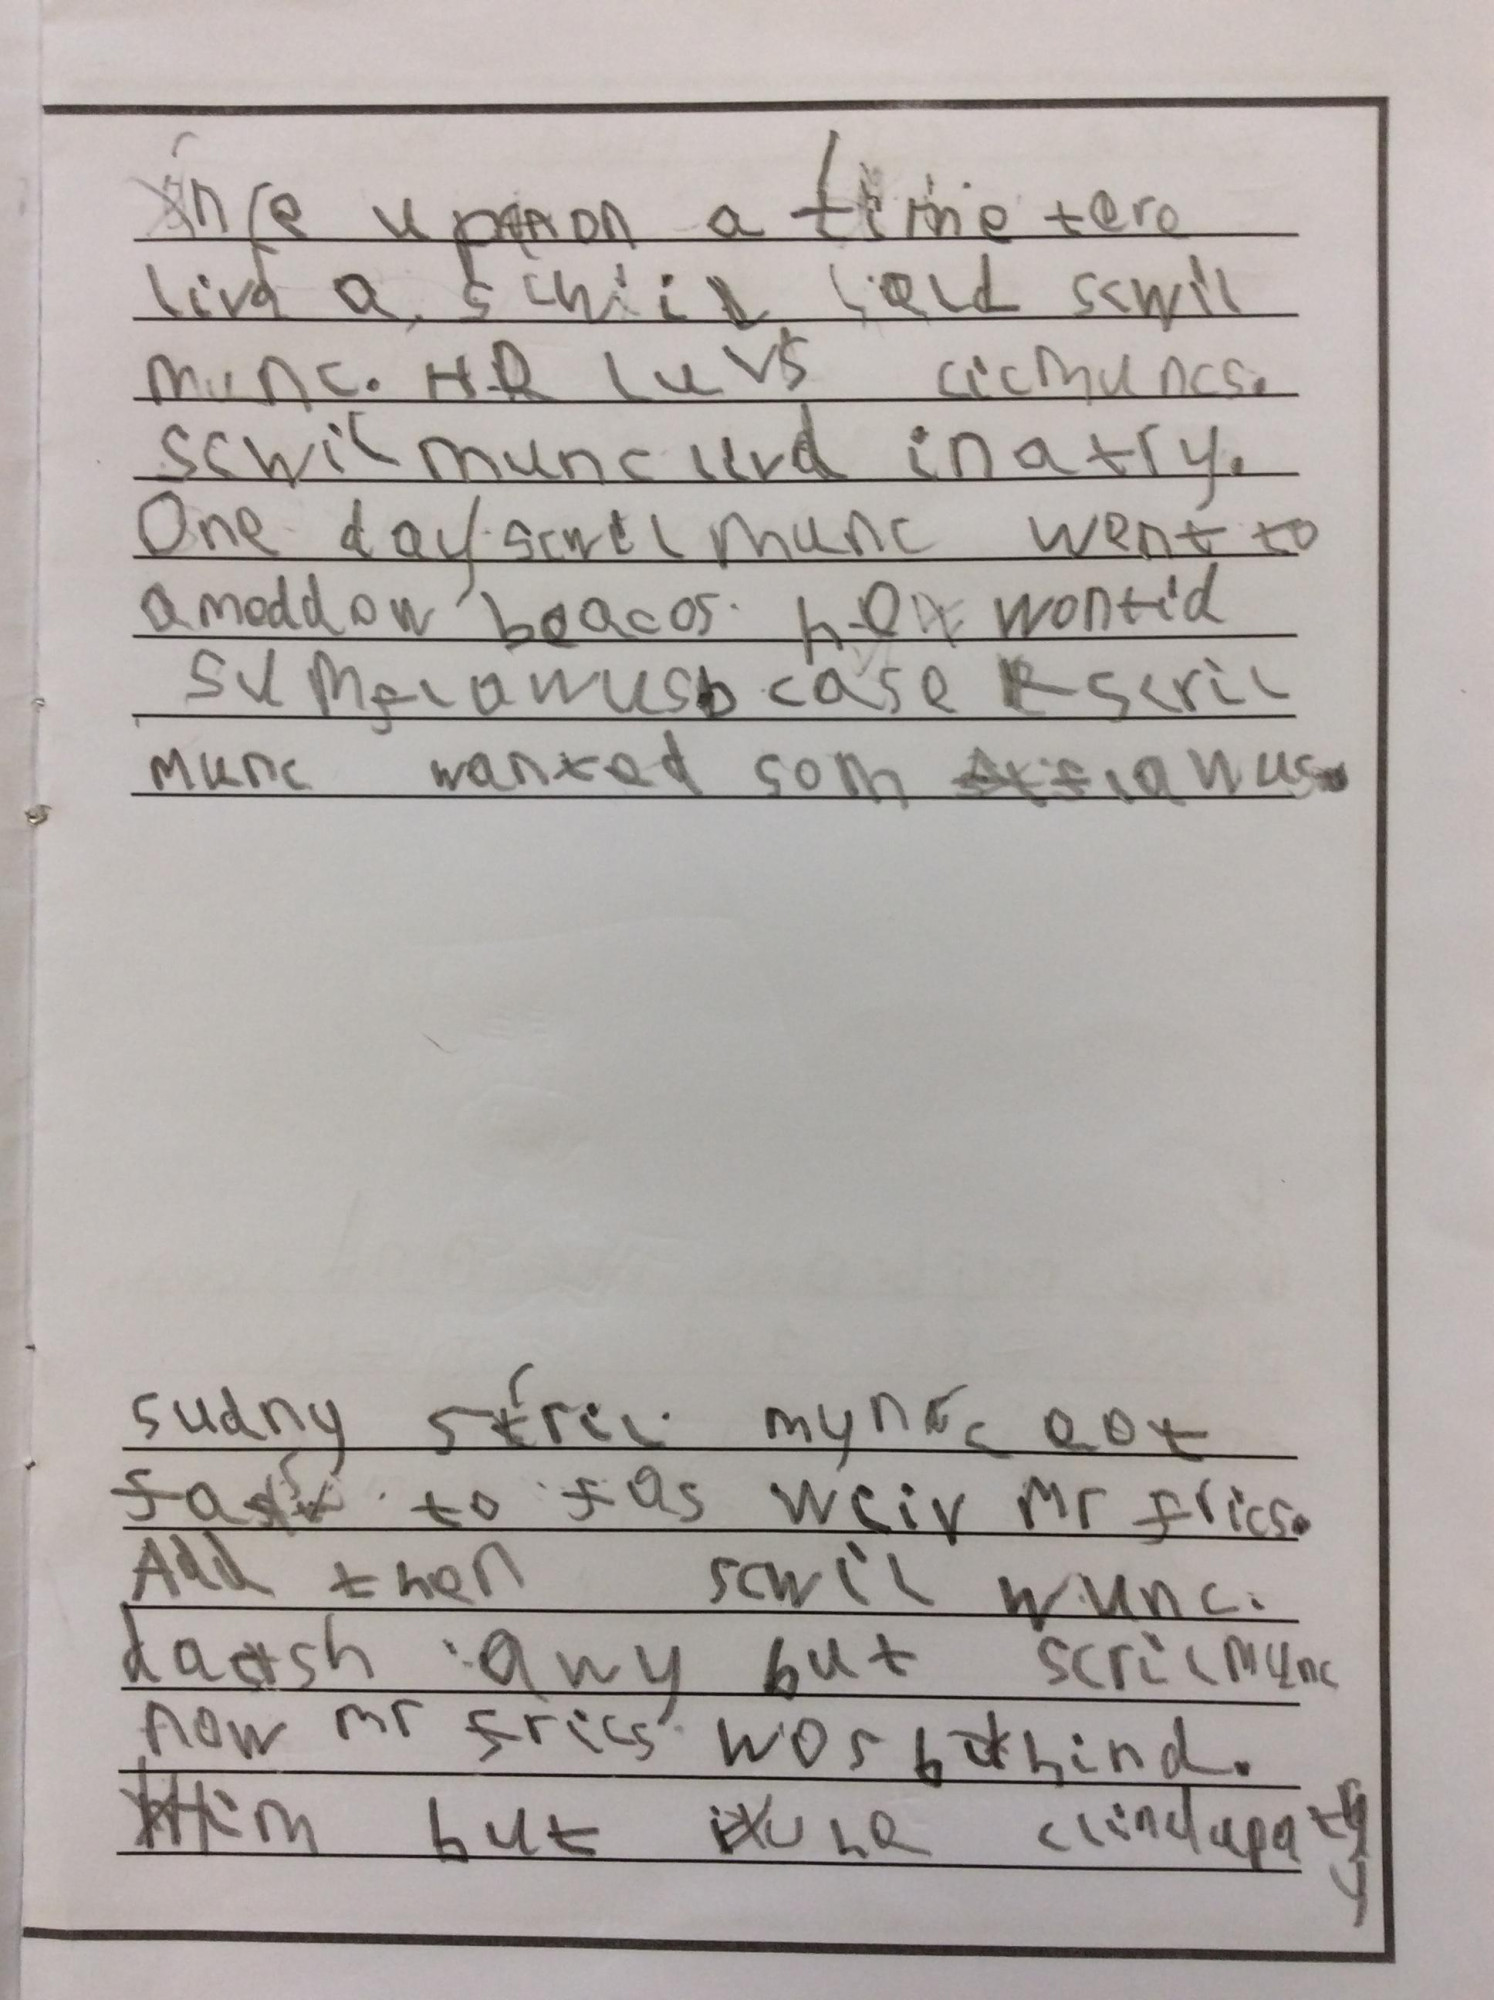 once upon a time tere
livd a scwil cold scwil
munc. He luvs cicmuncs.
scwil munc livd in a try.
One day scwil munc went to
a moddow beacos he wontid
sum flawus case scril
munc wanted som flawus.
sudny scril munc got
fas to fas wciv mr frics.
Add then scwil wunc.
dash awy but scril munc
now mr frics wos behind.
Him but he clind up a try